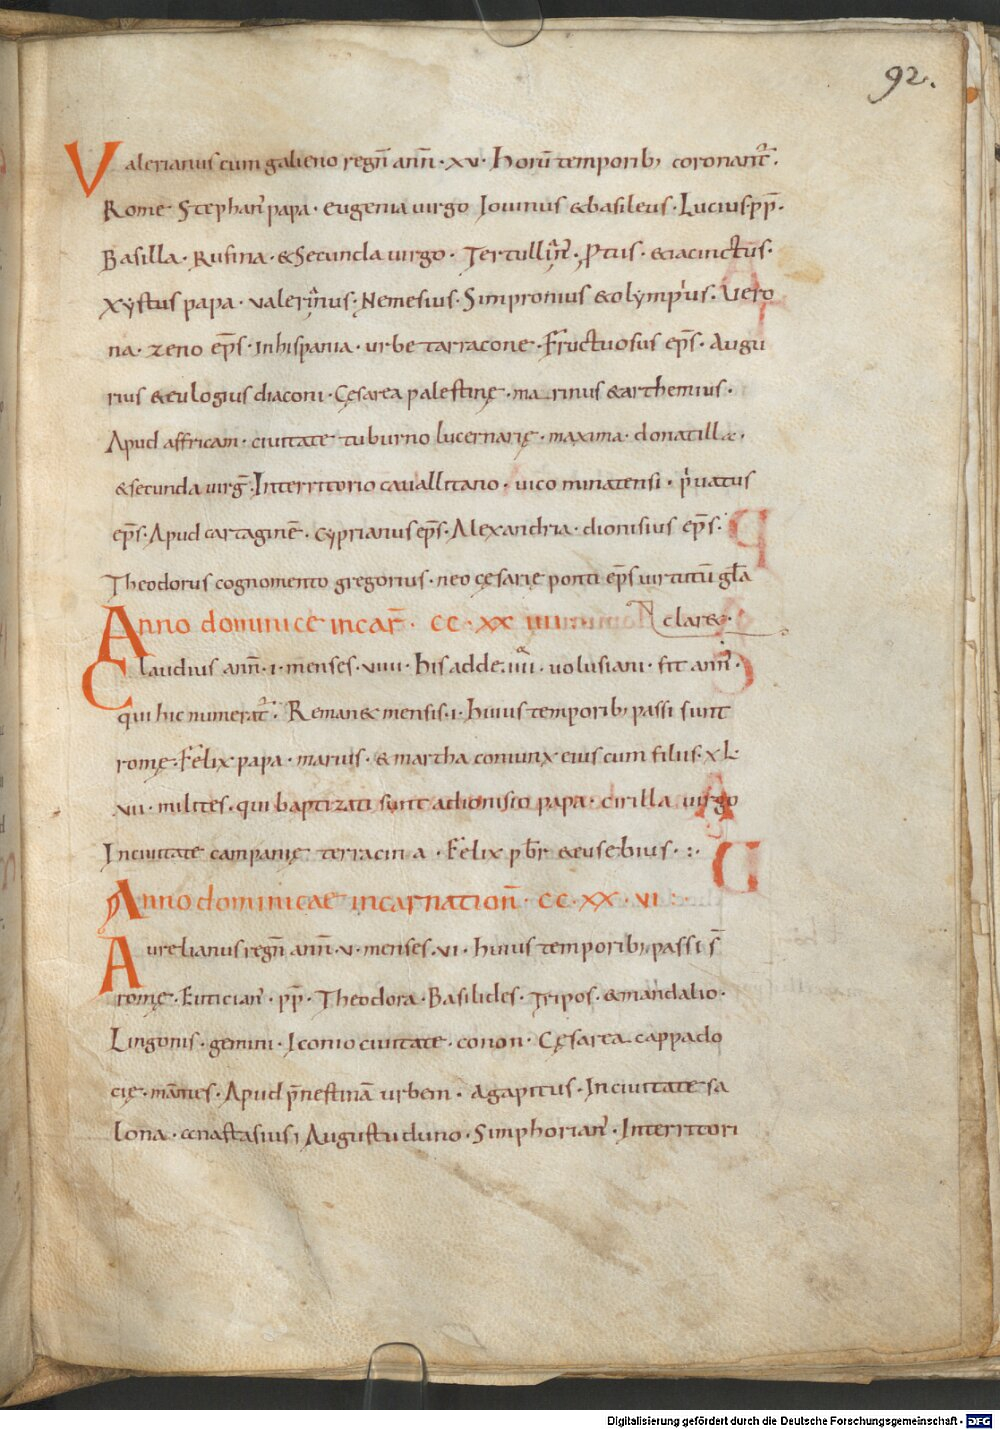 92.
Valerianus cum galieno regn̄ ann̄ · xv · Horū temporib; coronant᷑ ·
Rome Stephan᷑ papa · eugenia uirgo Iouinus &basileus · Lucius pp̄ ·
Basilla · Rufina · &Secuncla uirgo · Tertullin᷑ · Ptus · &iacinctus ·
Xystus papa · valerin᷑us · Nemesius · Simpronius &olympius · Uero
na · zeno ep̄s · In hispania · urbe tarracone · Fructuosus ep̄s · Augu
rius &eulogius diaconi · Cęsarea palestinę · ma rinus &arthemius ·
Apud affricam · ciuitate tuburno lucernarię · maxima · donatillæ ·
&secunda uirḡ · In territorio cauallitano · uico minatensi · priuatus
ep̄s · Apud cartaginē · cyprianus ep̄s · Alexandria · dionisius ep̄s ·
Theodorus cognomento gregorius · neo cęsarię ponti ep̄s uirtutū gła
Anno dominice incar̄ · cc · xx iiii
clar& ·
Claudius ann̄ · i · menses · viiii · his adde · iiii · uolusiani · fit ann᷑ ·
qui hic numerat᷑ · Reman& mensis · i · Huius temporib; passi sunt
romę · Felix papa · marius · & martha coniunx eius cum filiis · xL
vii · milites · qui baptizati sunt adionisio papa · cirilla uirgo
In ciuitate campanię terracin a · Felix pb̄r &eusebius · :·
Anno dominicae incarnation̄ · cc · xx · vi :
Aurelianus regn̄ ann̄ · v · menses · vi · huius temporib; passi s̄
romę · Eutician᷑ · pp̄ · Theodora · Basilides · Tripos · &mandalio ·
Lingonis · gemini · Iconio ciuitate · conon · Cęsarea cappado
cię · māmes · Apud p̄nestinā urbem · Agapitus · In ciuitate sa
lona · anastasius; Augustuduno · Simphorian᷑ · In territori
Digitalisierung gefördert durch die Deutsche Forschungsgemeinschaft - DFG